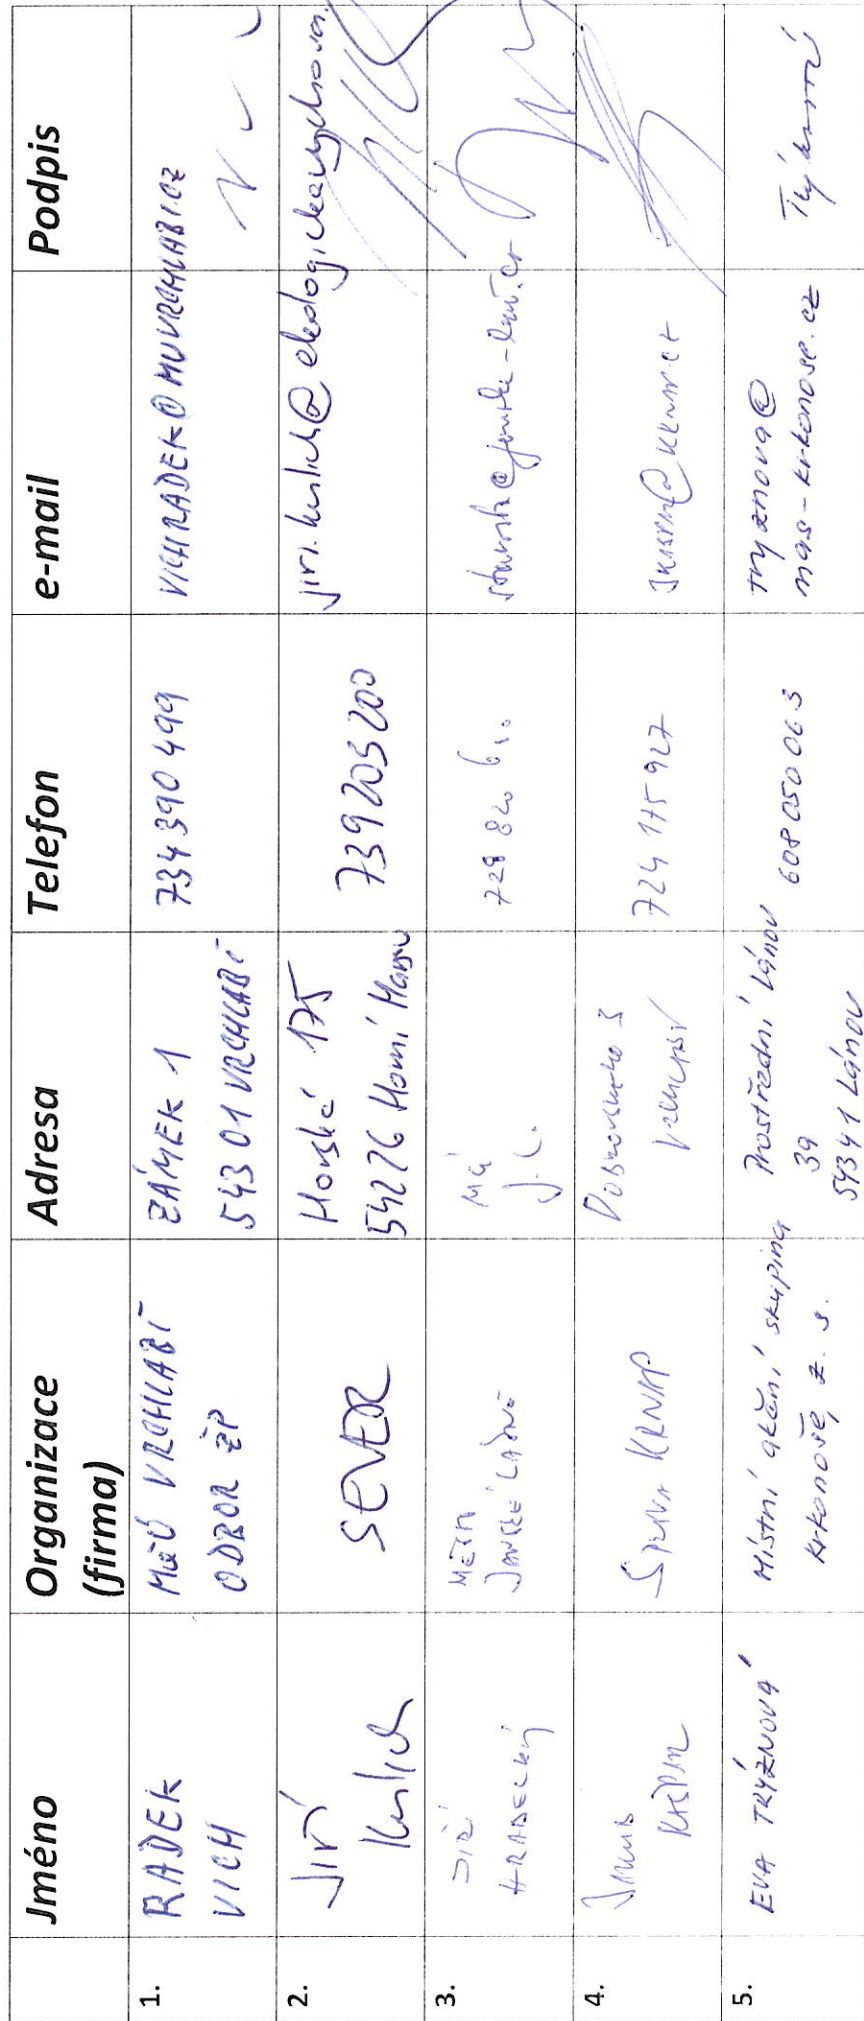 Jméno
Organizace
(firma)
Adresa
Telefon
e-mail
Podpis
1.
RADEK
VICH
MěÚ VRCHLABÍ
ODBOR ŽP
ZÁMEK 1
543 01 VRCHLABÍ
734 390 499
VICHRADEK@MUVRCHLABI.CZ
2.
Jiří
Kulich
SEVER
Horská 175
54226 Horní Marš
739203200
jiri.kulich@ekologickavychova.
3.
JIŘÍ
HRADECKÝ
MĚSTO
JANSKÉ LÁZNĚ
J.L.
4.
JAKUB
KAŠPAR
SPRÁVA KRNAP
Dobrovského 3
VRCHLABÍ
724 175 927
JKASPAR@KRNAP.CZ
5.
EVA TRÝZNOVÁ
Místní akční skupina
Krkonoše, z. s.
Prostřední Lánov
39
54341 Lánov
608 050 063
tryznova@
mas-krkonose.cz